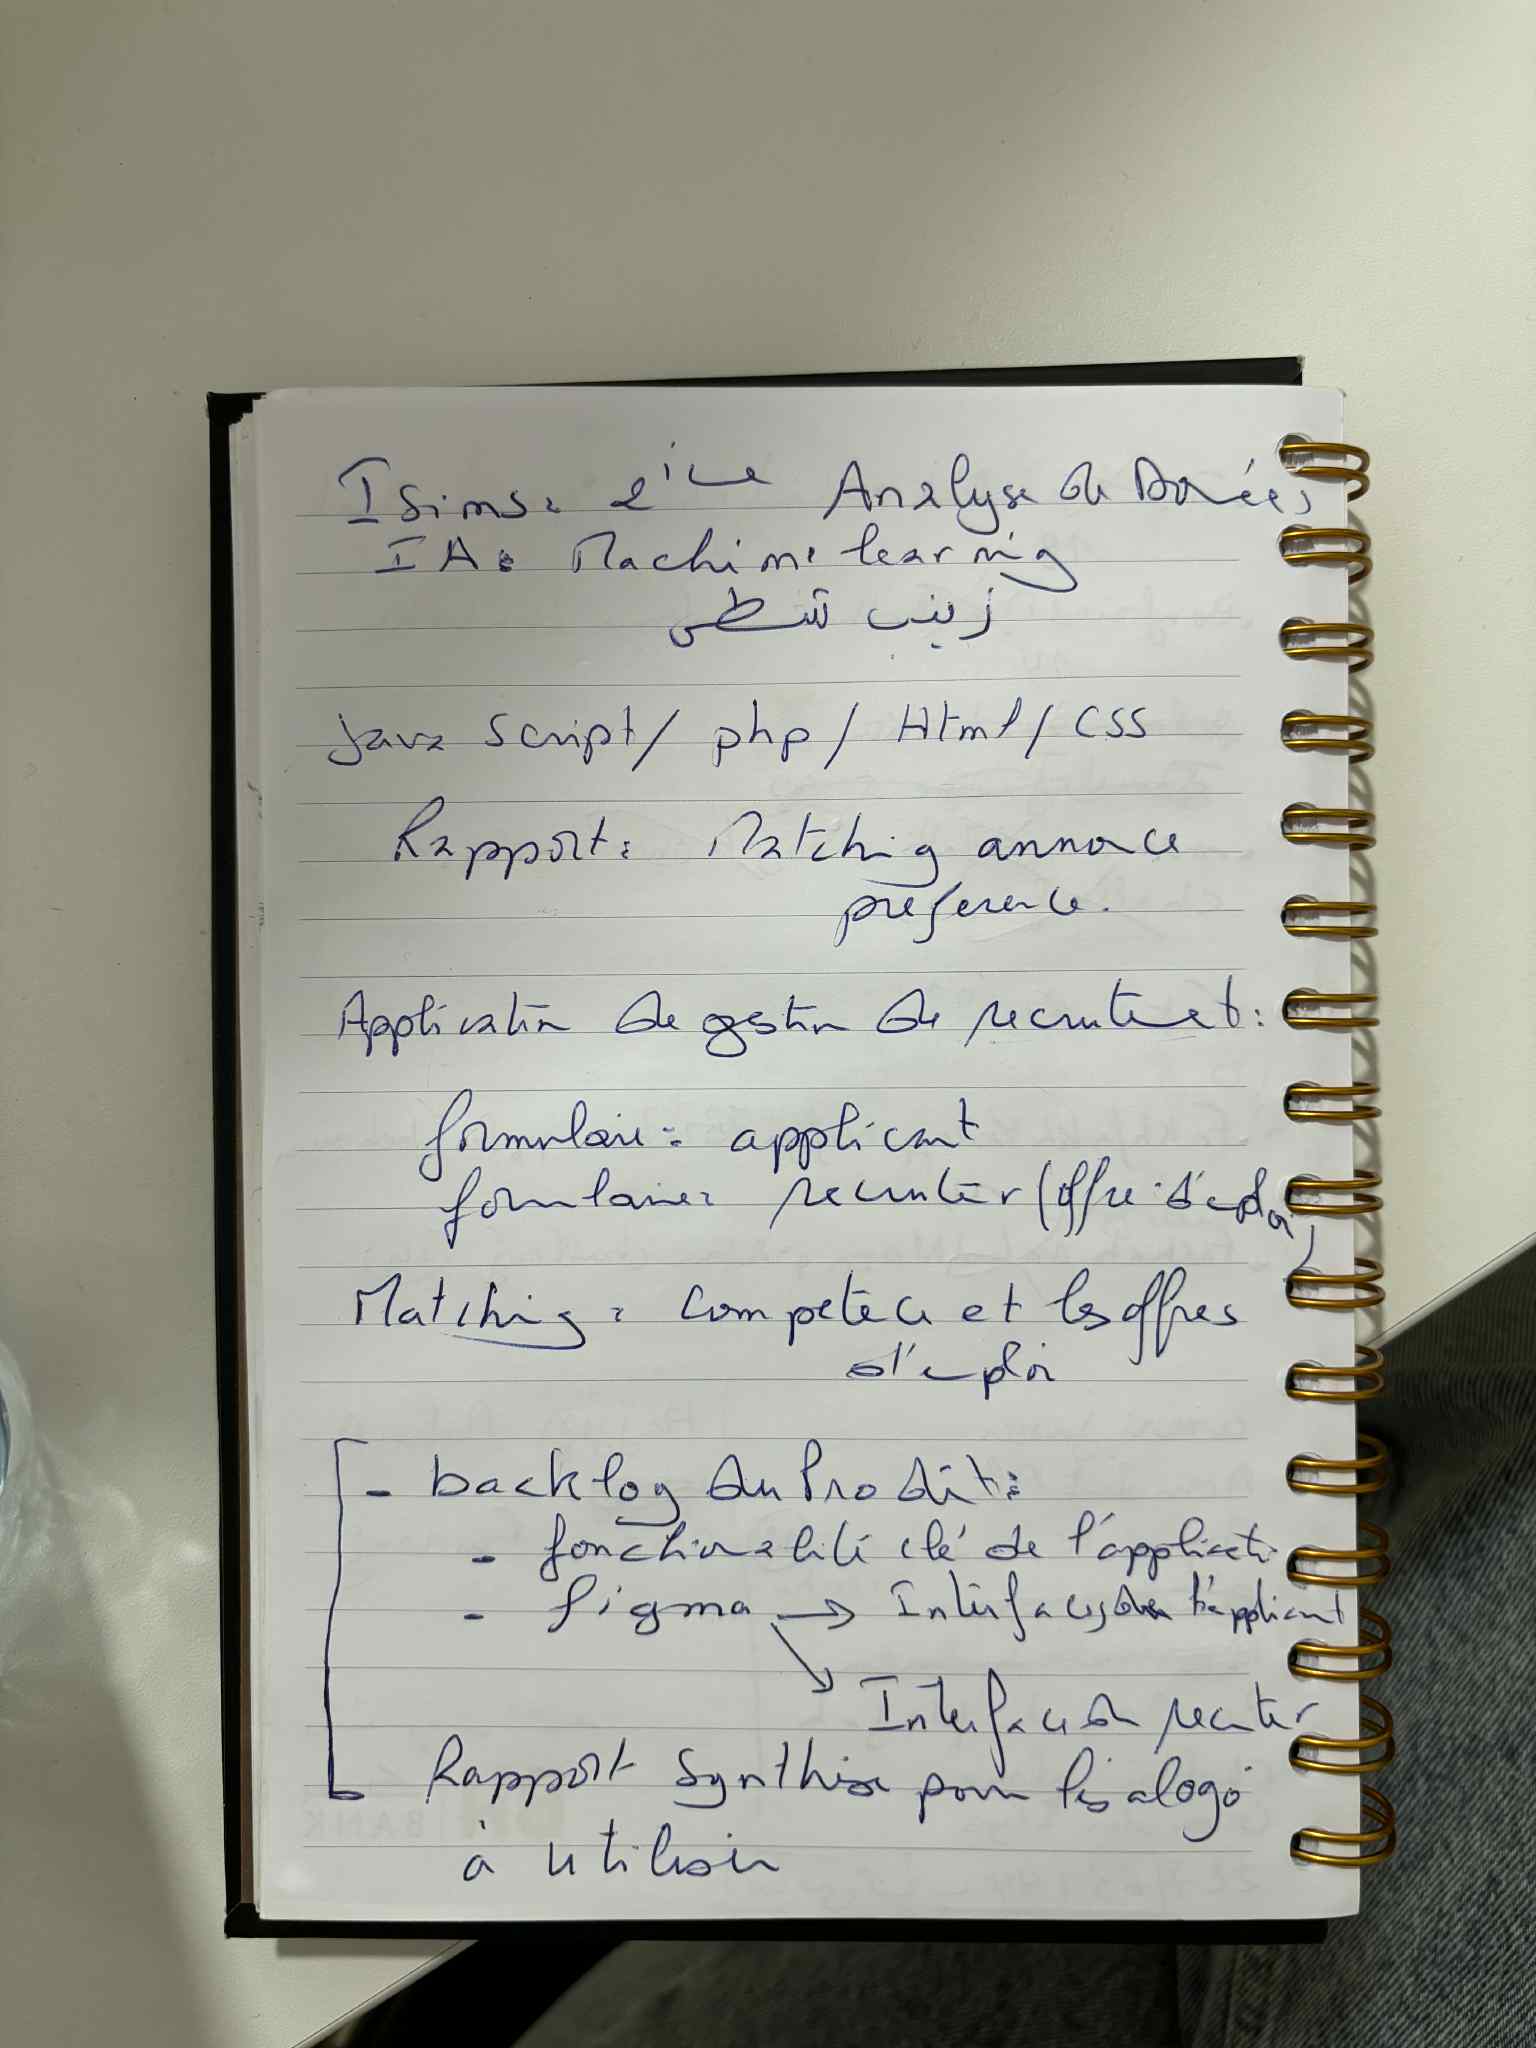 Isims: 2ième Analyse de Données
IA: Machine learning
زينب شطي
java Script / php / Html / CSS
Rapport: Matching annonce
preference.
Application de gestion de recrutement:
formulaire: applicant
formulaire: recruter (offre d'emploi)
Matching: competence et les offres
d'emploi
- backlog du Produit:
- fonctionalité clé de l'application
- figma → Interfaces de l'applicant
Interface du recruter
Rapport Synthèse pour les algo
à utiliser